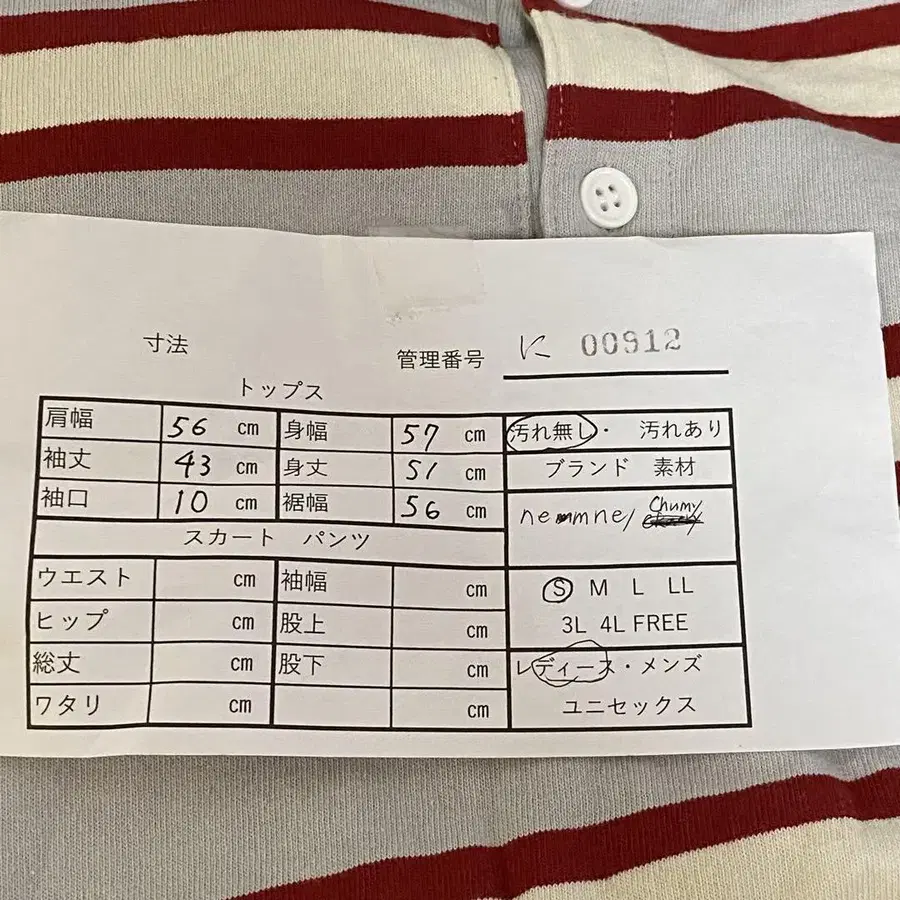 寸法
管理番号 に 00912
トップス
肩幅 56 cm 身幅 57 cm 汚れ無し・ 汚れあり
袖丈 43 cm 身丈 51 cm ブランド 素材
袖口 10 cm 裾幅 56 cm nemne/ Chumy
スカート パンツ
ウエスト cm 袖幅 cm S M L LL
ヒップ cm 股上 cm 3L 4L FREE
総丈 cm 股下 cm レディース・メンズ
ワタリ cm cm ユニセックス